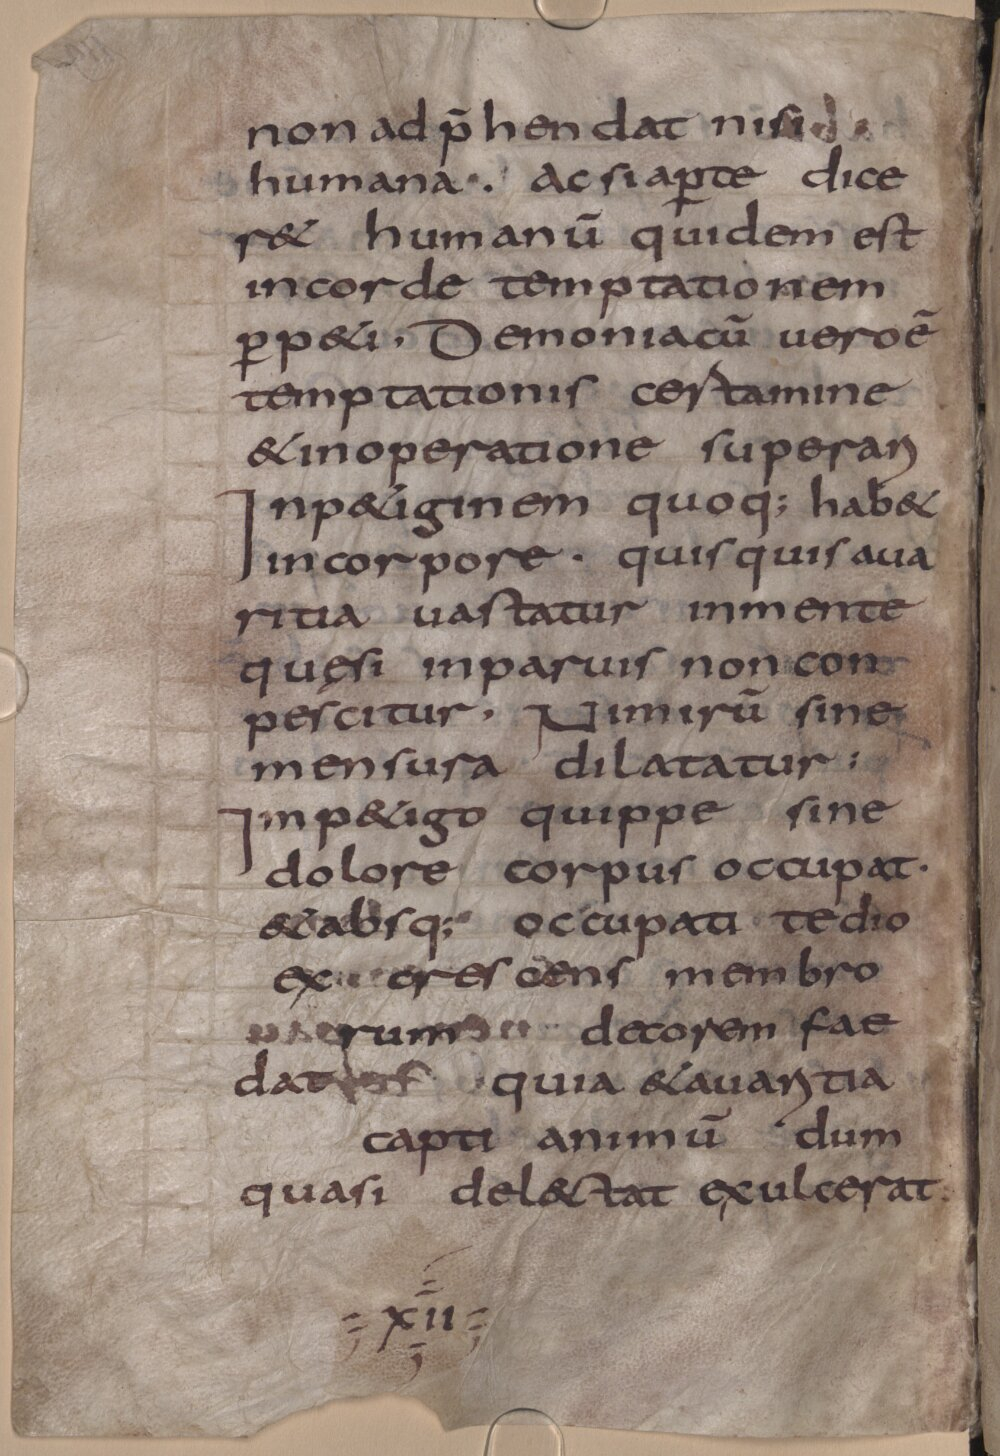 non adp̄hendat nisi
humana·. Ac si aꝑte dice
r& humanū quidem est
incorde temptationem
ꝑp&i· Demoniacū uero ē
temptationis certamine
&inoperatione superari
Inp&iginem quoq; hab&
incorpore· quisquis aua
ritia uastatur inmente
quęsi inparuis non con
pescitur· Nimirū sine
mensura dilatatur;
Imp&igo quippe sine
dolore corpus occupat·
&absq; occupati tedio
ex crescens membro
rum decorem fae
dat quia &auaritia
capti animū dum
quasi del&ctat exulcerat·
xii